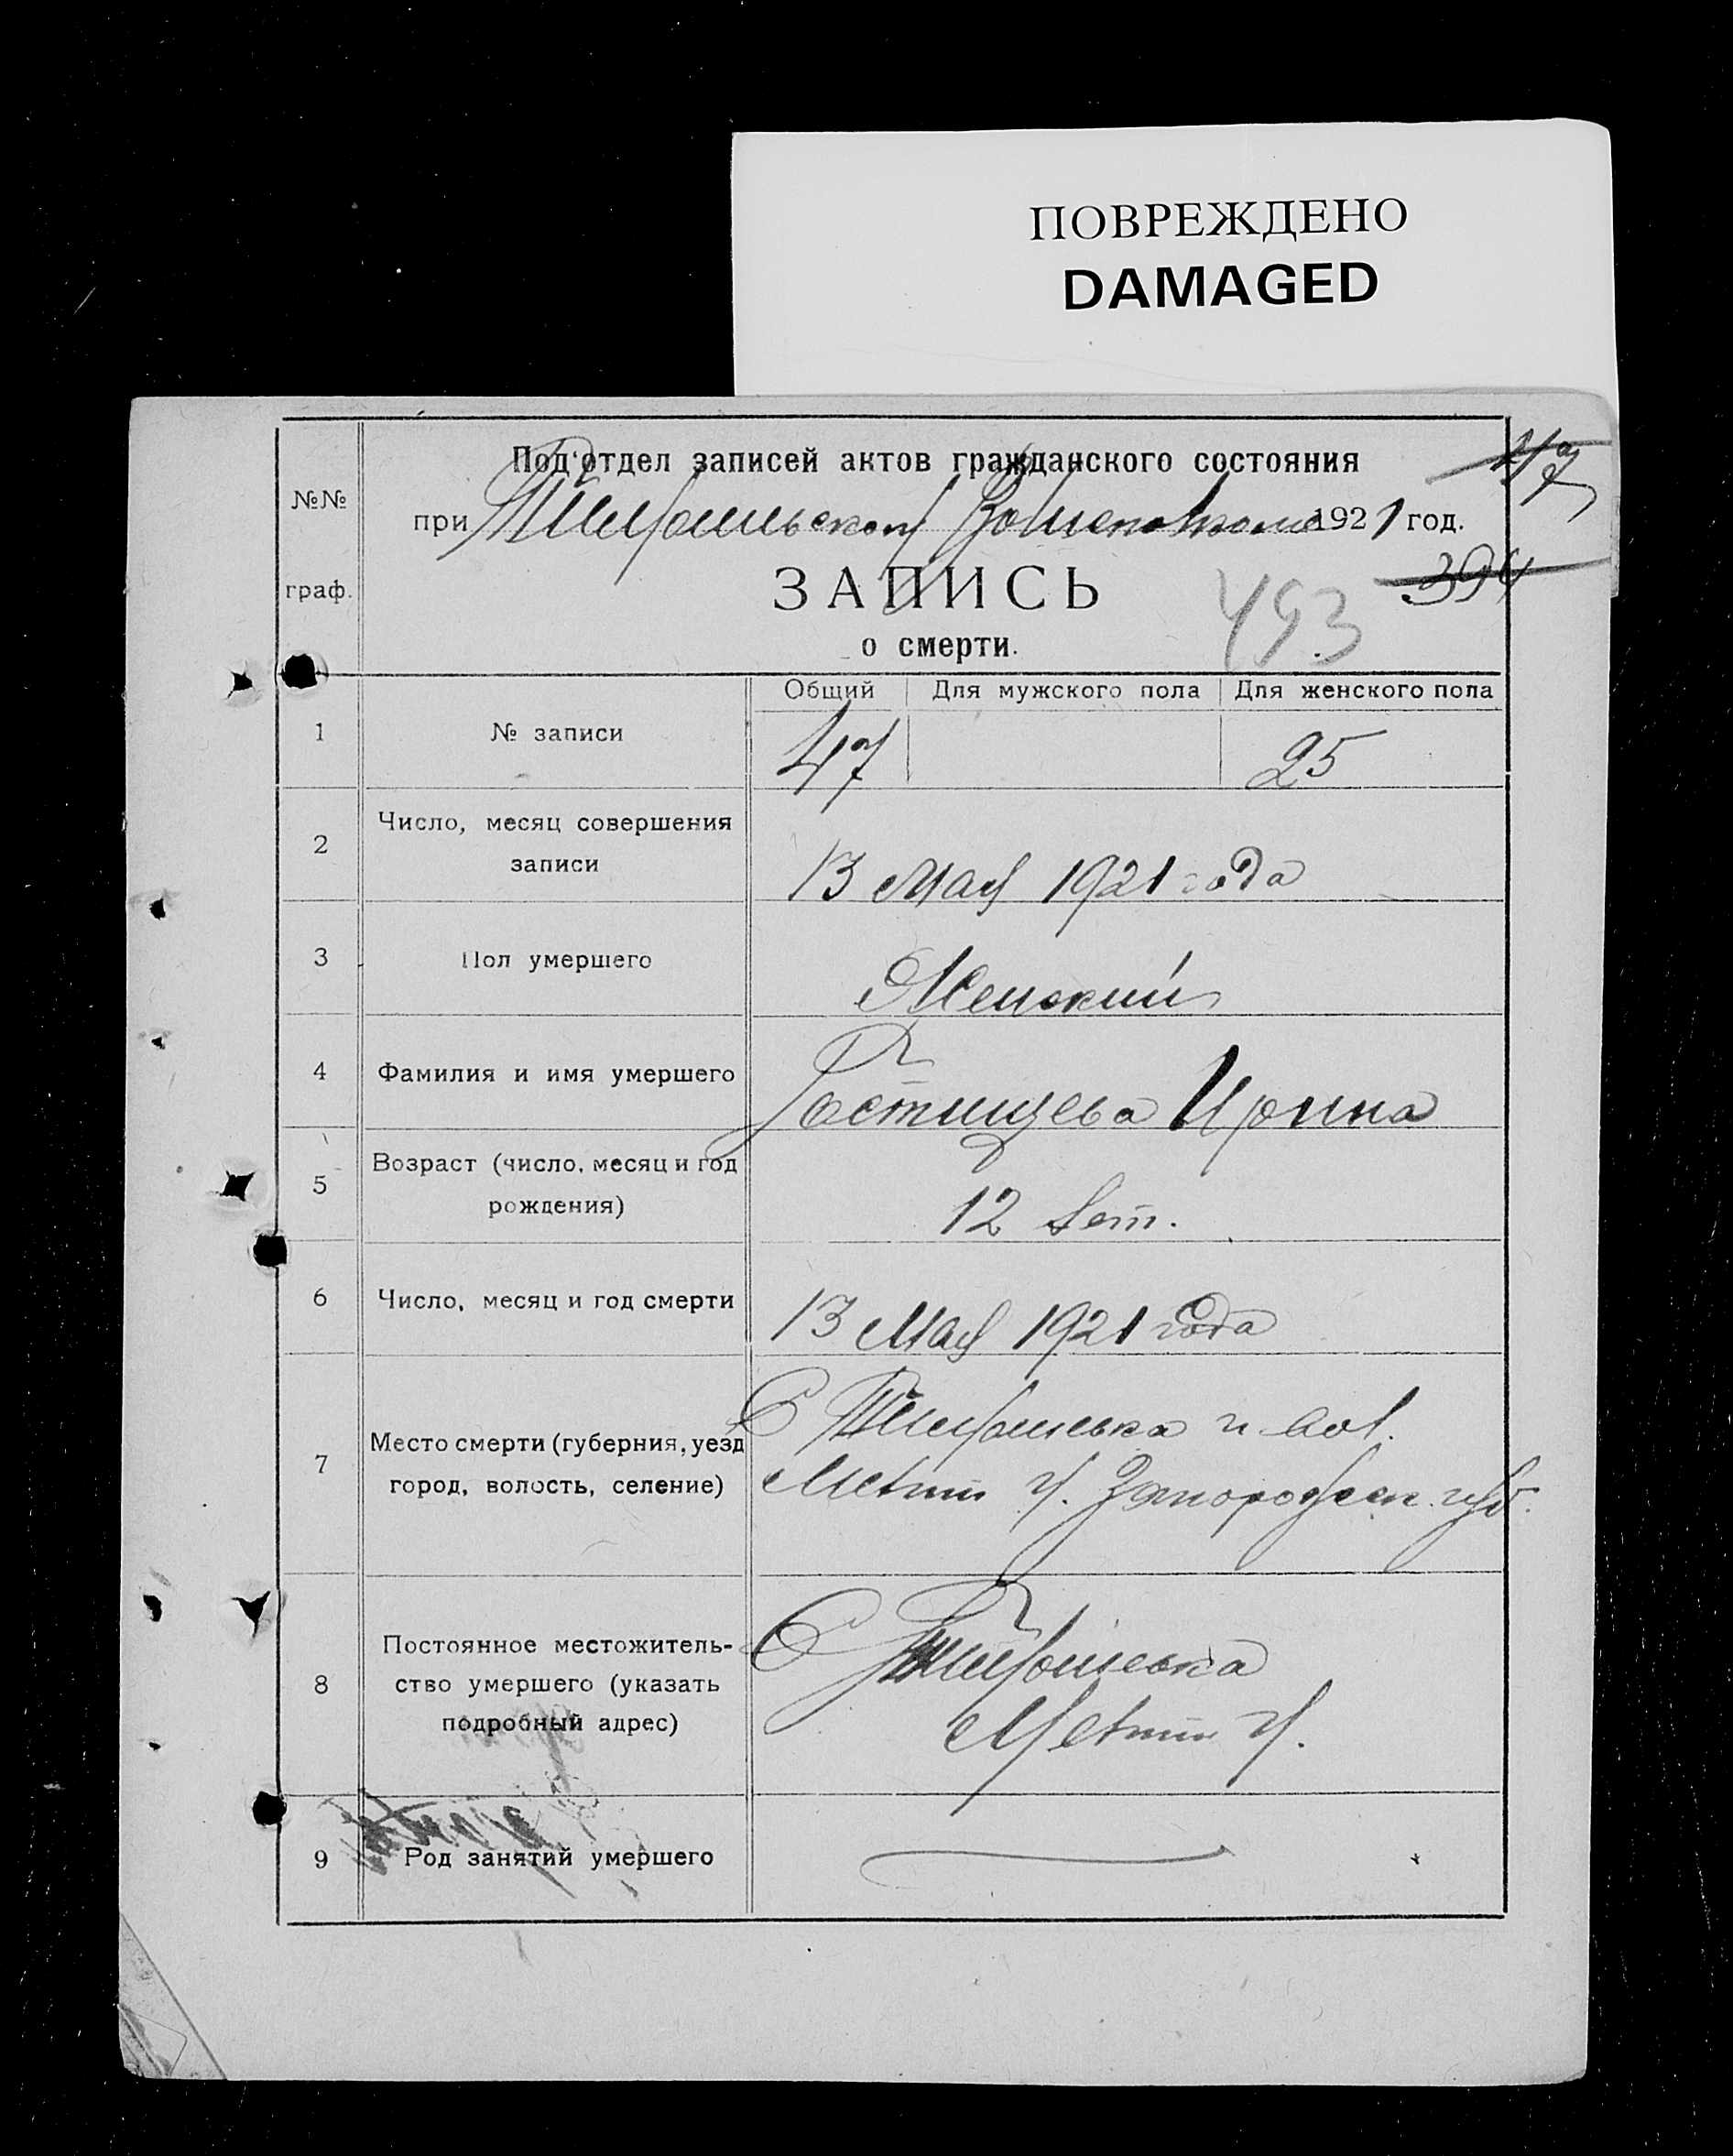 ПОВРЕЖДЕНО
DAMAGED
Под'отдел записей актов гражданского состояния
№№
при 1921 год.
граф.
ЗАПИСЬ
394
493
о смерти.
Общий Для мужского пола Для женского пола
1 № записи 47 25
2 Число, месяц совершения
записи
13 Мая 1921 года
3 Пол умершего Женский
4 Фамилия и имя умершего Гостищева Ирина
5 Возраст (число, месяц и год
рождения)
12 лет.
6 Число, месяц и год смерти 13 Мая 1921 года
7 Место смерти (губерния, уезд
город, волость, селение)
С Тимошевка и вол.
Мелит у. Запорожск. губ.
8 Постоянное местожитель-
ство умершего (указать
подробный адрес)
С Тимошевка
Мелит у.
9 Род занятий умершего